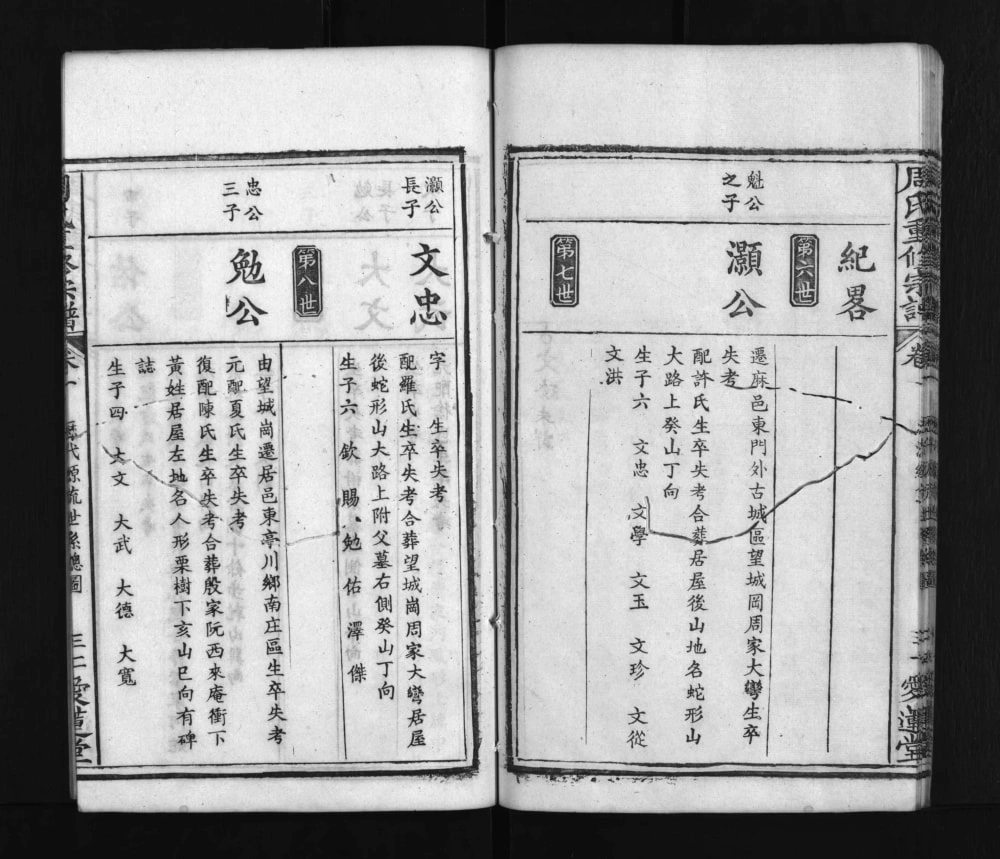 周氏重修宗譜
卷一
愛蓮堂
紀畧
第六世
魁公
之子
灝公
遷麻邑東門外古城區望城岡周家大彎生卒
失考
配許氏生卒失考合葬居屋後山地名蛇形山
大路上癸山丁向
生子六 文忠 文學 文玉 文珍 文從
文洪
第七世
灝公
長子
文忠
字 生卒失考
配羅氏生卒失考合葬望城崗周家大彎居屋
後蛇形山大路上附父墓右側癸山丁向
生子六 欽 賜 勉 佑 澤 傑
第八世
忠公
三子
勉公
由望城崗遷居邑東亭川鄉南庄區生卒失考
元配夏氏生卒失考
復配陳氏生卒失考合葬殷家阮西來庵衝下
黃姓居屋左地名人形栗樹下亥山巳向有碑
誌
生子四 大文 大武 大德 大寬
歷代源流世系總圖
愛蓮堂